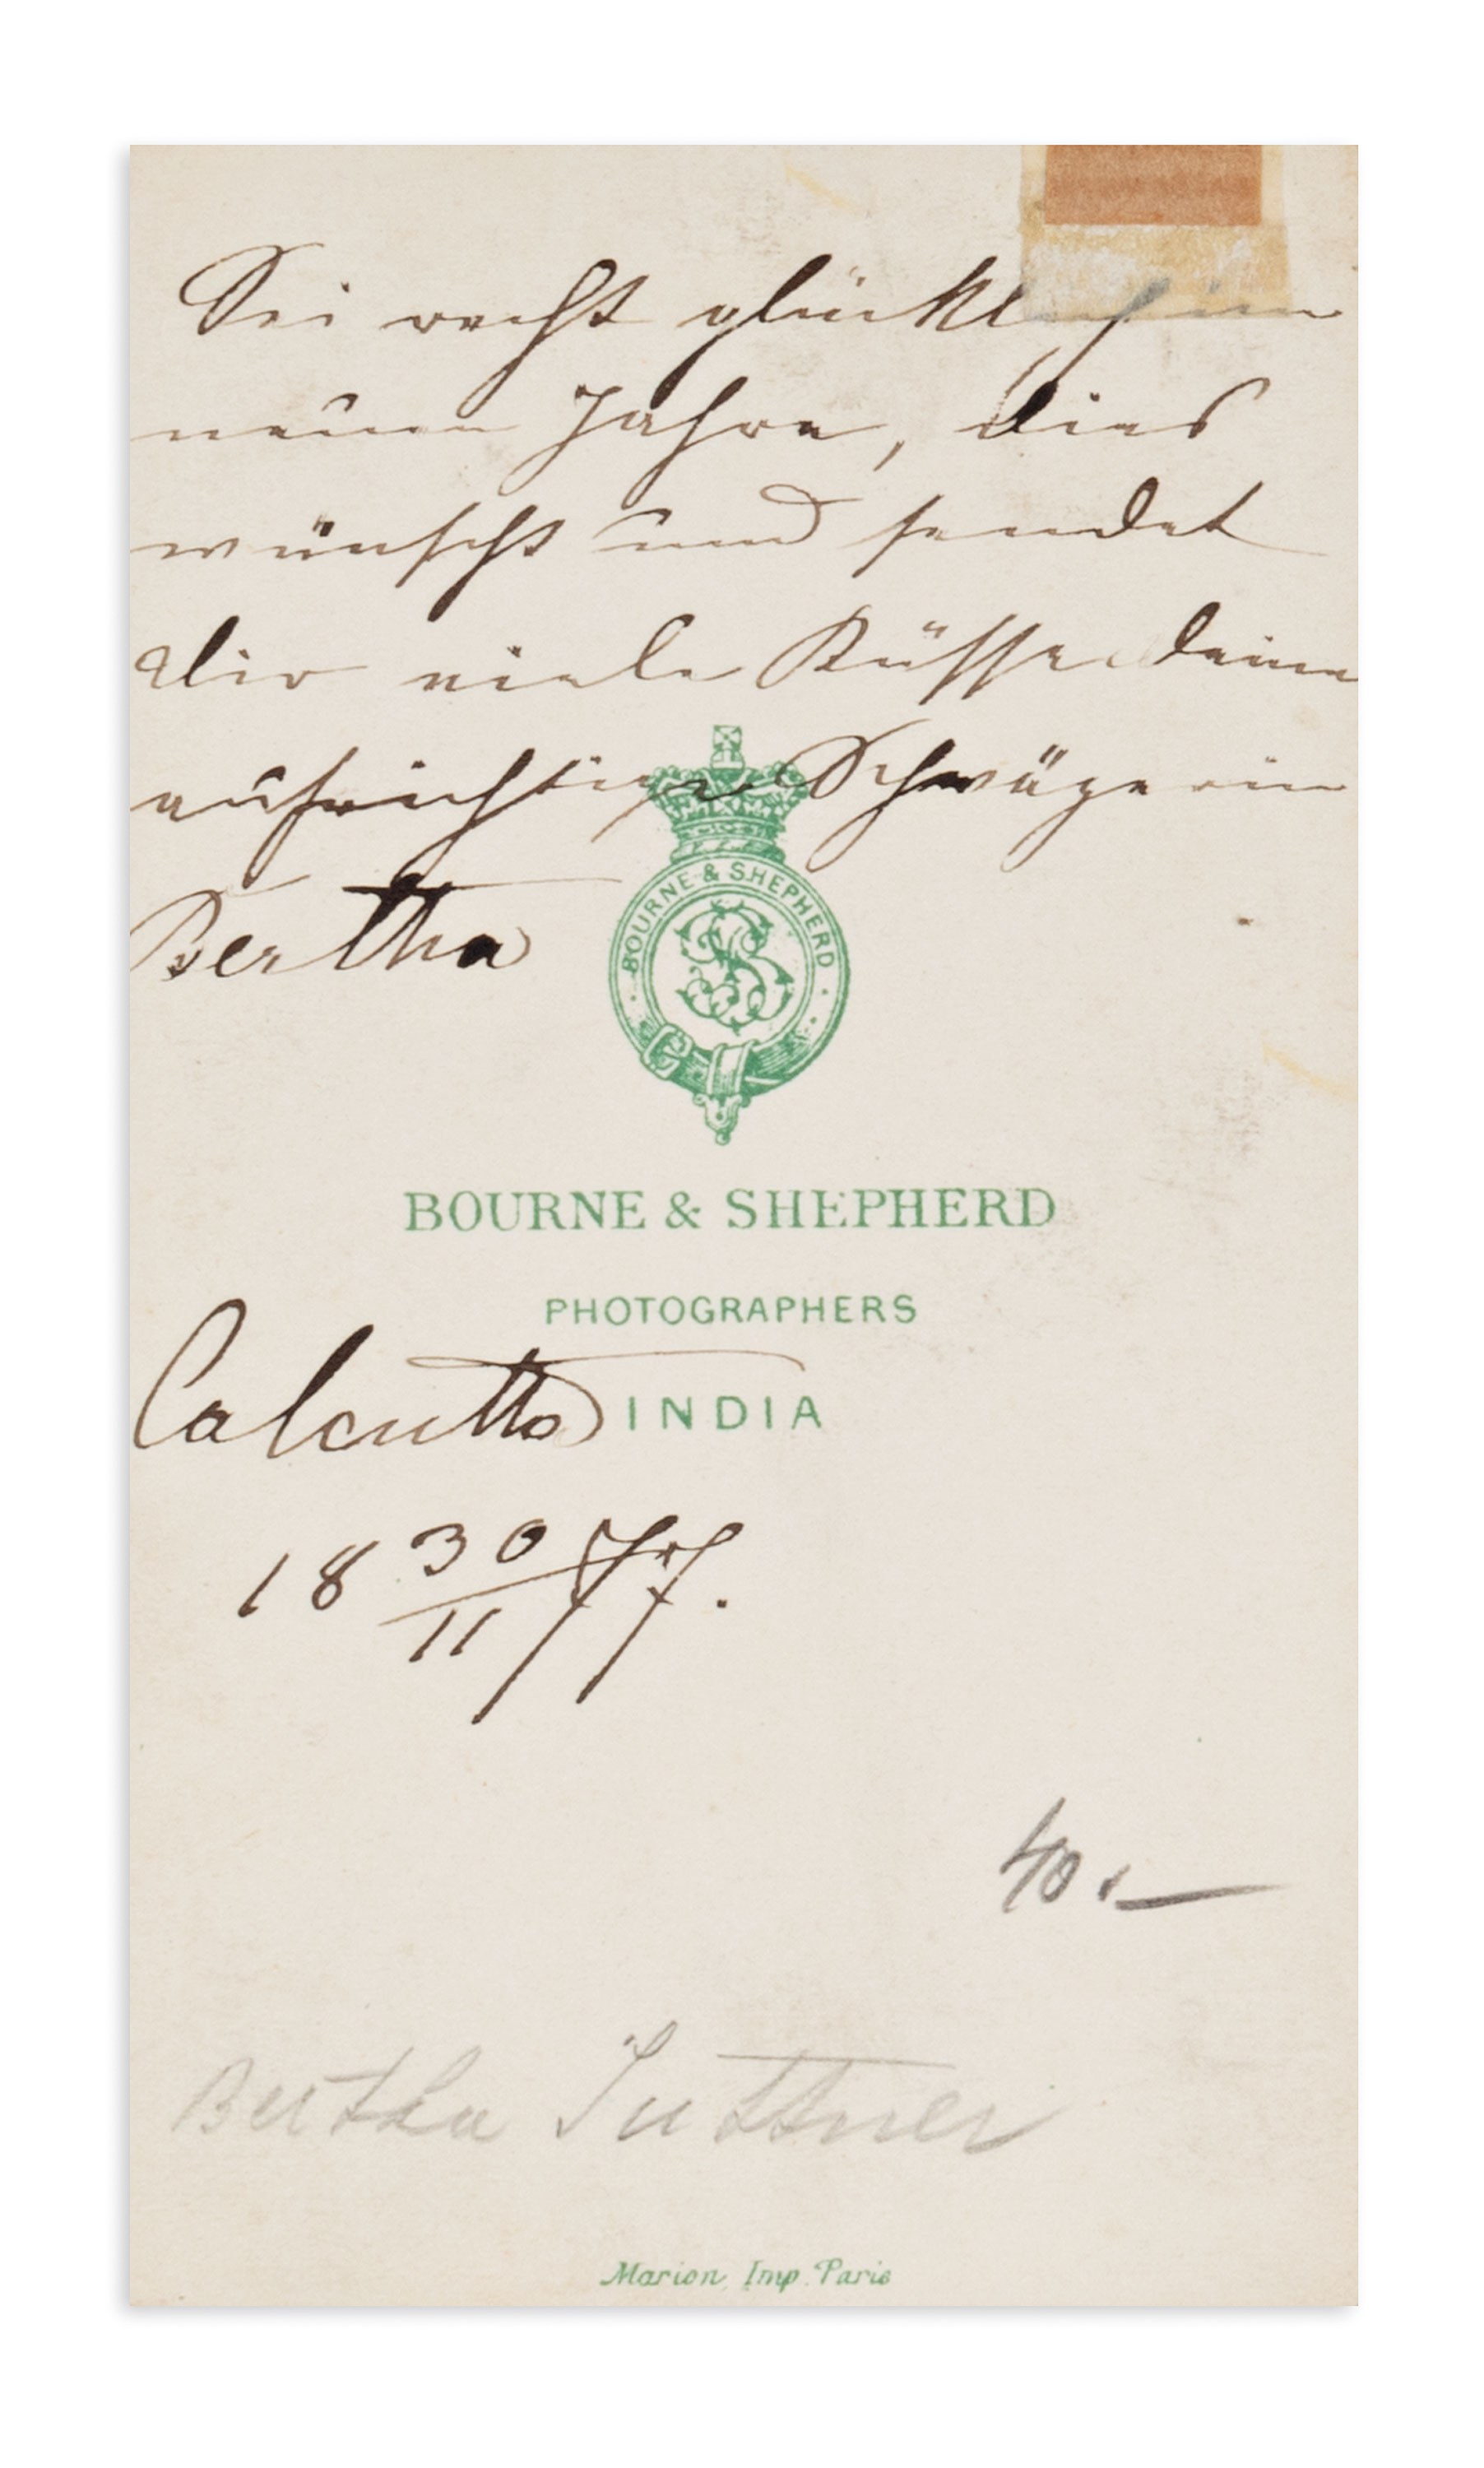 Sei recht glücklich im
neuen Jahre, dies
wünscht und sendet
Dir viele Küsse deine
aufrichtige Schwägerin
Bertha
BOURNE & SHEPHERD
BS
BOURNE & SHEPHERD
PHOTOGRAPHERS
Calcutta INDIA
18 30/11 77.
40.—
Bertha Suttner
Marion Imp. Paris